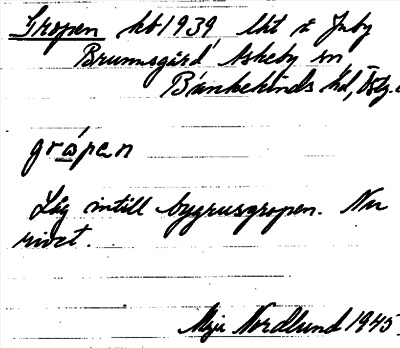 Gropen hb 1939, lht å Juby
Brunnsgård, Askeby sn,
Bankekinds hd, Östg.
gro̱pe̱n
Låg intill bygrusgropen. Nu
rivet.
Maja Nordlund 1945.